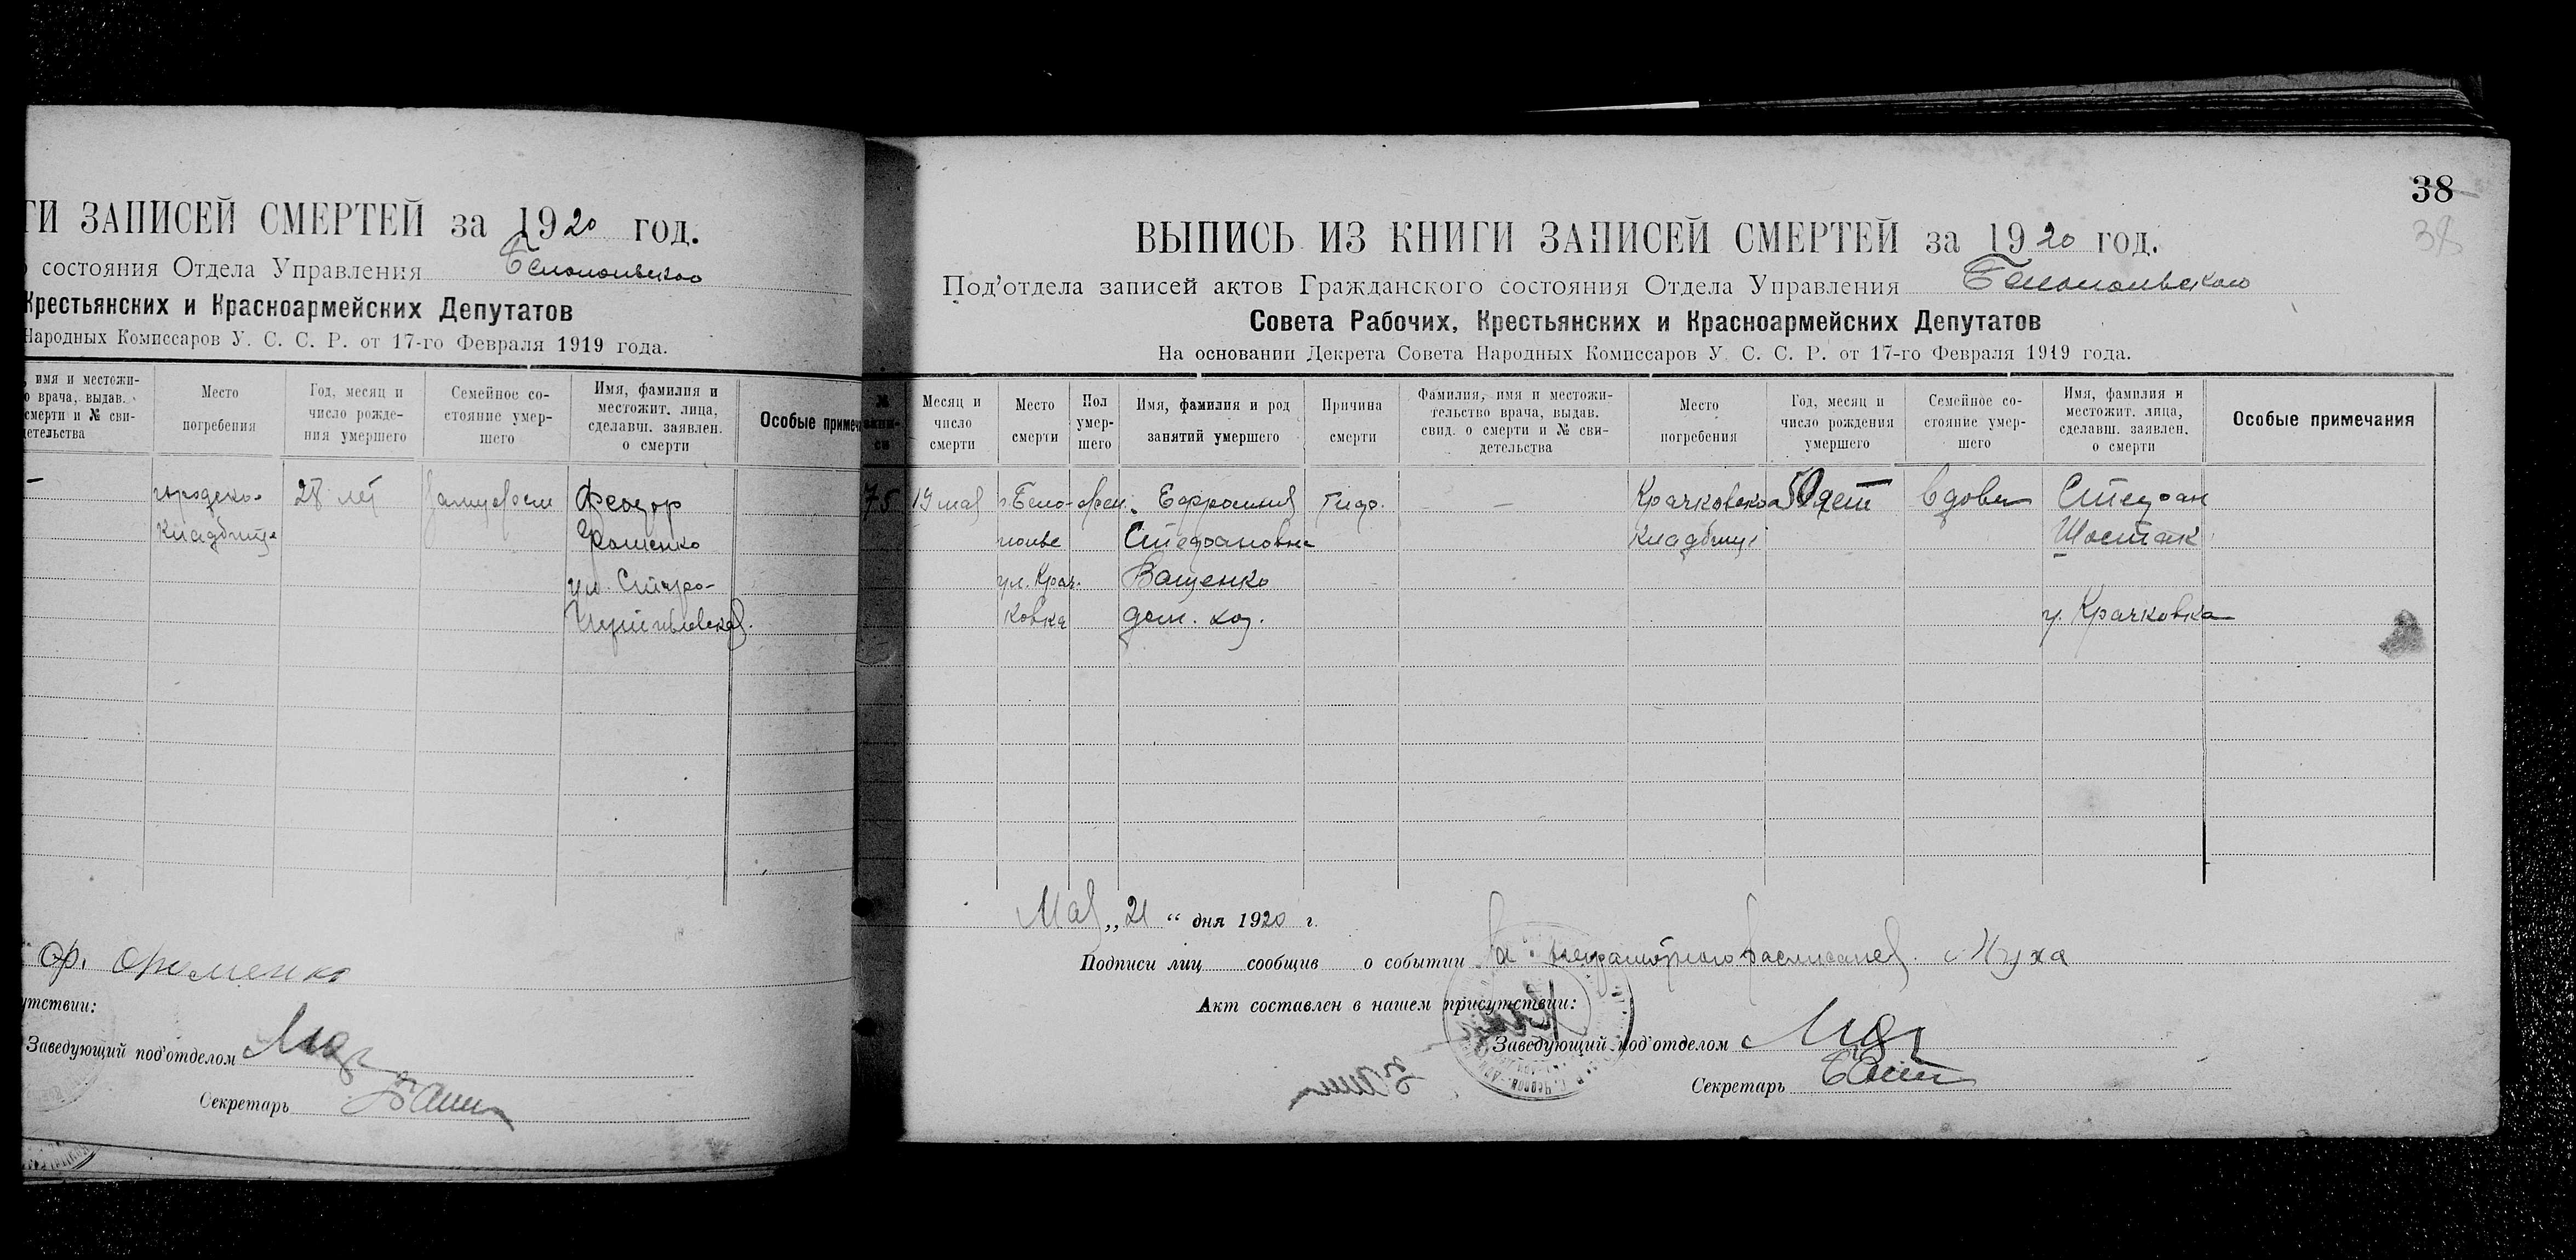 ГИ ЗАПИСЕЙ СМЕРТЕЙ за 1920 год.
состояния Отдела Управления Белопольского
Крестьянских и Красноармейских Депутатов
Народных Комиссаров У. С. С. Р. от 17-го Февраля 1919 года.
имя и местожи-
врача, выдав.
смерти и № сви-
детельства
Место
погребения
Год, месяц и
число рожде-
ния умершего
Семейное со-
стояние умер-
шего
Имя, фамилия и
местожит. лица,
сделавш. заявлен.
о смерти
Особые примеча
—
городско.
кладбище
28 лет
Феодор
Фоменко
ул. Старо-
Путивльская.
Ф. Фоменко
утствии:
Заведующий под'отделом
Секретарь
38
38
ВЫПИСЬ ИЗ КНИГИ ЗАПИСЕЙ СМЕРТЕЙ за 1920 год.
Под'отдела записей актов Гражданского состояния Отдела Управления Белопольского
Совета Рабочих, Крестьянских и Красноармейских Депутатов
На основании Декрета Совета Народных Комиссаров У. С. С. Р. от 17-го Февраля 1919 года.
№
запи-
си
Месяц и
число
смерти
Место
смерти
Пол
умер-
шего
Имя, фамилия и род
занятий умершего
Причина
смерти
Фамилия, имя и местожи-
тельство врача, выдав.
свид. о смерти и № сви-
детельства
Место
погребения
Год, месяц и
число рождения
умершего
Семейное со-
стояние умер-
шего
Имя, фамилия и
местожит. лица,
сделавш. заявлен.
о смерти
Особые примечания
75
19 мая
г. Бело-
полье
ул. Крач.
ковка
жен.
Ефросиния
Стефановна
Ващенко
дом. хоз.
Тиф.
—
Крачковско
кладбище
50 лет
вдова
Стефан
Шостак
у. Крачковка
Мая „21“ дня 1920 г.
Подписи лиц сообщив о событии За неграмотного расписался Муха
Акт составлен в нашем присутствии:
Заведующий под'отделом
Секретарь